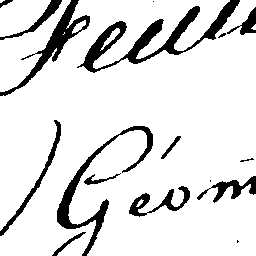 Feuil
) Géom